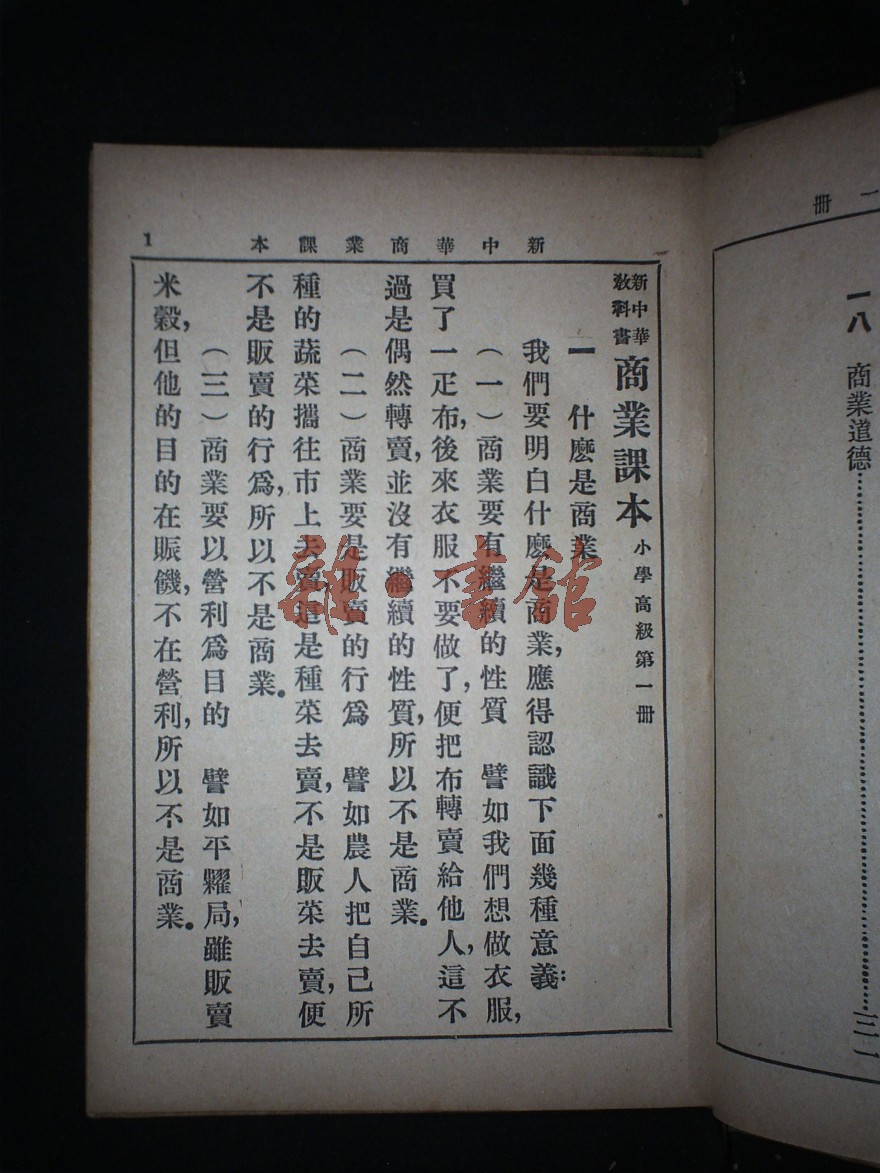 一冊
一八 商業道德……三二
新中華商業課本
1
新中華
教科書
商業課本 小學高級第一冊
一 什麽是商業
我們要明白什麽是商業,應得認識下面幾種意義:
(一)商業要有繼續的性質 譬如我們想做衣服,
買了一疋布,後來衣服不要做了,便把布轉賣給他人,這不
過是偶然轉賣,並沒有繼續的性質,所以不是商業。
(二)商業要是販賣的行爲 譬如農人把自己所
種的蔬菜攜往市上去賣,這是種菜去賣,不是販菜去賣,便
不是販賣的行爲,所以不是商業。
(三)商業要以營利爲目的 譬如平糶局,雖販賣
米穀,但他的目的在賑饑,不在營利,所以不是商業。
雜·書館